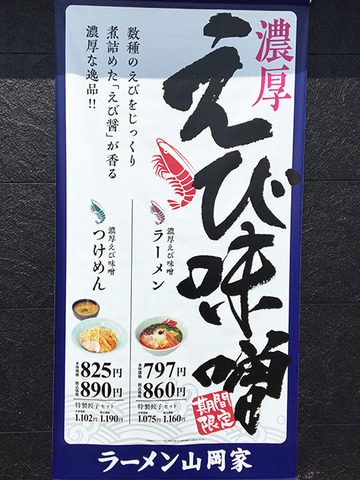 濃厚
えび味噌
期間限定
数種のえびをじっくり
煮詰めた「えび醤」が香る
濃厚な逸品!!
濃厚えび味噌
ラーメン
797円
860円
特製餃子セット
1,075円
1,160円
濃厚えび味噌
つけめん
825円
890円
特製餃子セット
1,102円
1,190円
ラーメン山岡家